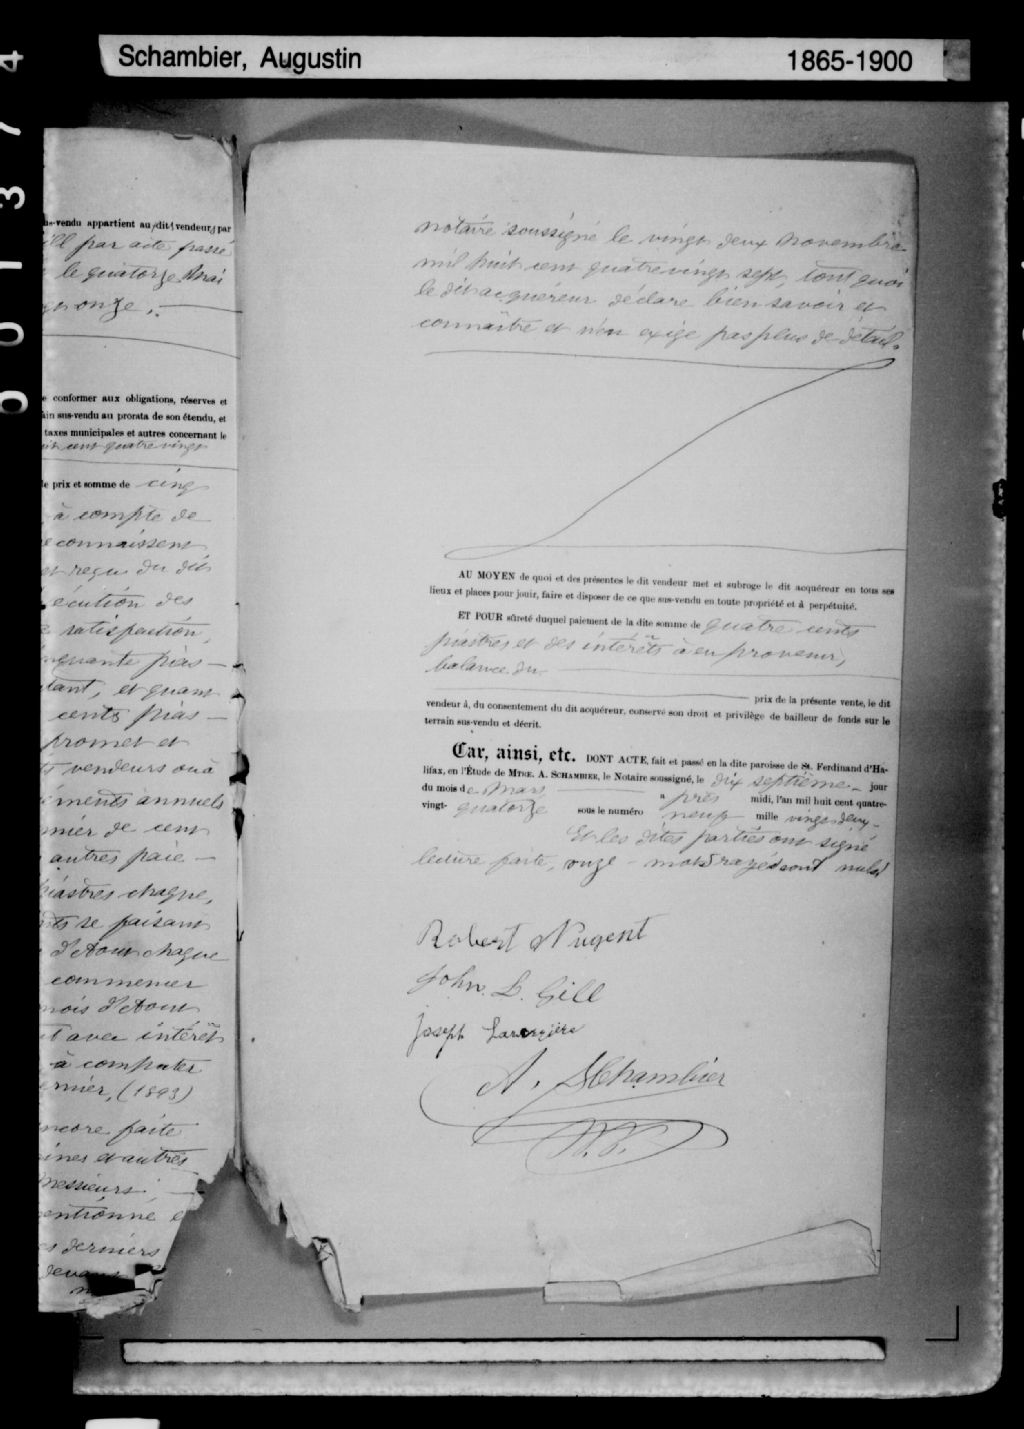 Schambier, Augustin 1865-1900
001374
us-vendu appartient au dit vendeurs par
ill par acte passé
le quatorze Mai
onze,
e conformer aux obligations, réserves et
ain sus-vendu au prorata de son étendu, et
taxes municipales et autres concernant le
cent quatre vingt
e prix et somme de cinq
à compte de
econnaissent
et reçu du dit
écution des
satisfaction,
nquante pias-
tant, et quant
cents pias-
promet et
vendeurs ou à
ements annuels
mier de cent
autres paie-
piastres chaque,
ts se faisant
d'Aout chaque
commencer
mois d'Aout
t avec intérêt
à compter
rnier, (1893)
ncore faite
ines et autres
Messieurs
entionné e
es derniers
devan
notaire soussigné le vingt deux Novembre
mil huit cent quatrevingt sept, tout quoi
le dit acquéreur déclare bien savoir et
connaître et n'en exige pas plus de détail.
AU MOYEN de quoi et des présentes le dit vendeur met et subroge le dit acquéreur en tous ses
lieux et places pour jouir, faire et disposer de ce que sus-vendu en toute propriété et à perpétuité.
ET POUR sûreté duquel paiement de la dite somme de quatre cents
piastres et des intérêts à en provenir,
balance du
prix de la présente vente, le dit
vendeur à, du consentement du dit acquéreur, conservé son droit et privilège de bailleur de fonds sur le
terrain sus-vendu et décrit.
Car, ainsi, etc. DONT ACTE, fait et passé en la dite paroisse de St. Ferdinand d'Ha-
lifax, en l'Étude de MTRE. A. SCHAMBIER, le Notaire soussigné, le dix septième jour
du mois de Mars après midi, l'an mil huit cent quatre-
vingt- quatorze sous le numéro neuf mille vingt deux-
Et les dites parties ont signé
lecture faite, onze - mots rayés sont nuls
Robert Nugent
John L. Gill
Joseph
A. Schambier
N.P.